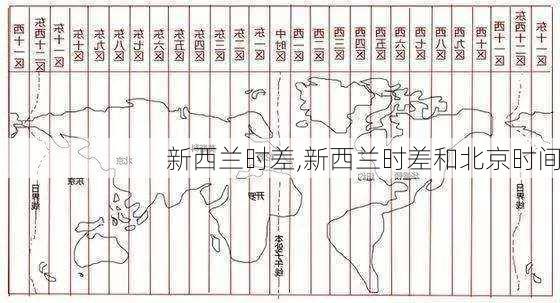 西十一区
东西十二区
东十一区
东十区
东九区
东八区
东七区
东六区
东五区
东四区
东三区
东二区
东一区
中时区
西一区
西二区
西三区
西四区
西五区
西六区
西七区
西八区
西九区
西十区
西十一区
东西十二区
东十一区
新西兰时差,新西兰时差和北京时间
北京
东京
开罗
纽约
日界线
本初子午线
日界线